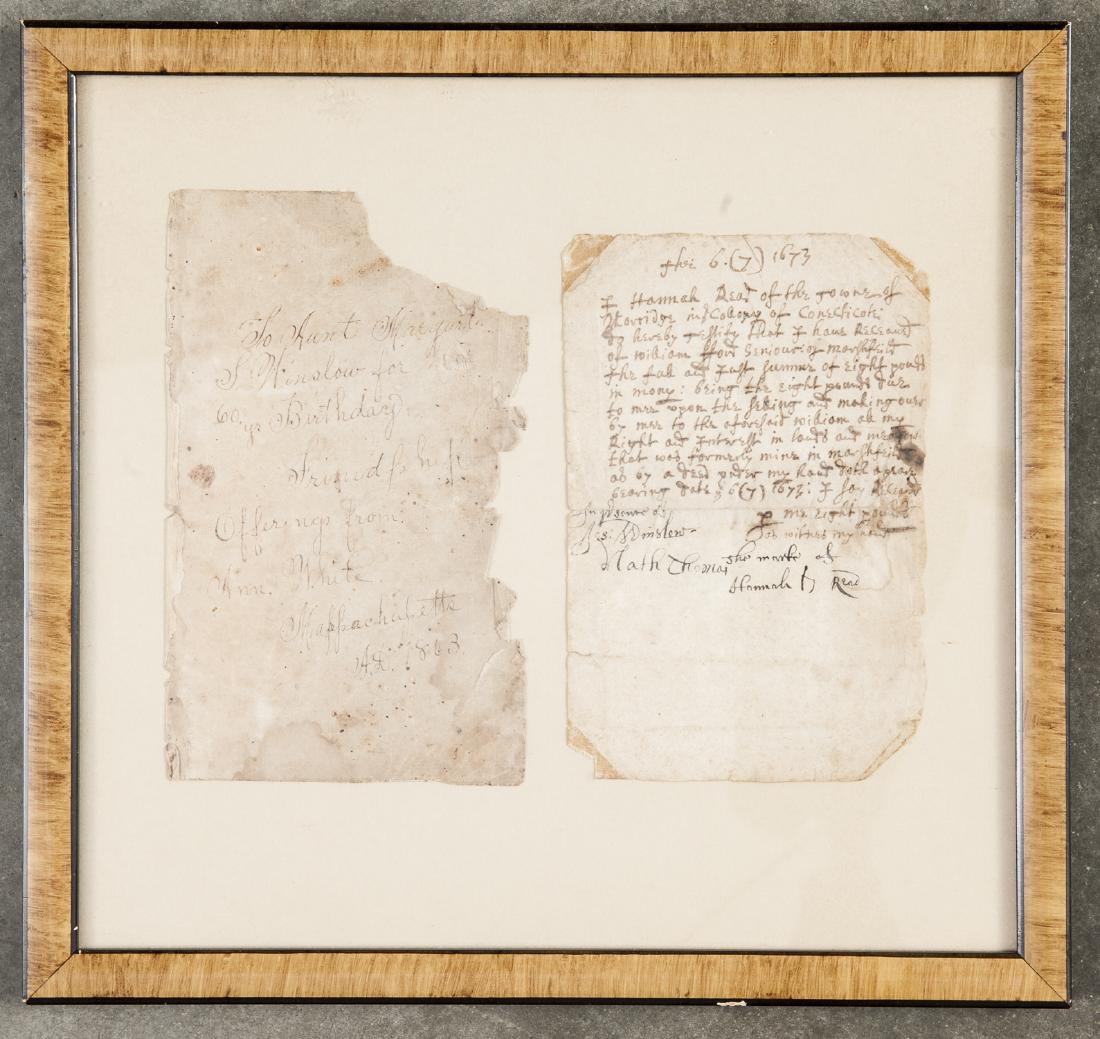 To Aunt Margaret
S Winslow for
60 yr Birthday
Friendship
Offerings from
Ann White
Massachusetts
AD. 1863
6.(7) 1673
I Hannah Read of the towne of
Norridge in Collony of Conecticott
do hereby testify that I haue Receaued
of William fford Seniour of marshfeild
the full and Just summe of eight pounds
in mony: being the eight pounds due
to mee vpon the selling and making ouer
by mee to the aforesaid william all my
Right and Interest in lands and
that was formerly mine in marshfeild
as by a deed vnder my hand doth apeare
bearing date 6(7) 1673: I say Receaued
p me eight pounds
In psence of as witnes my hand
Winslow
Nath Thomas the marke of
Hannah H Read